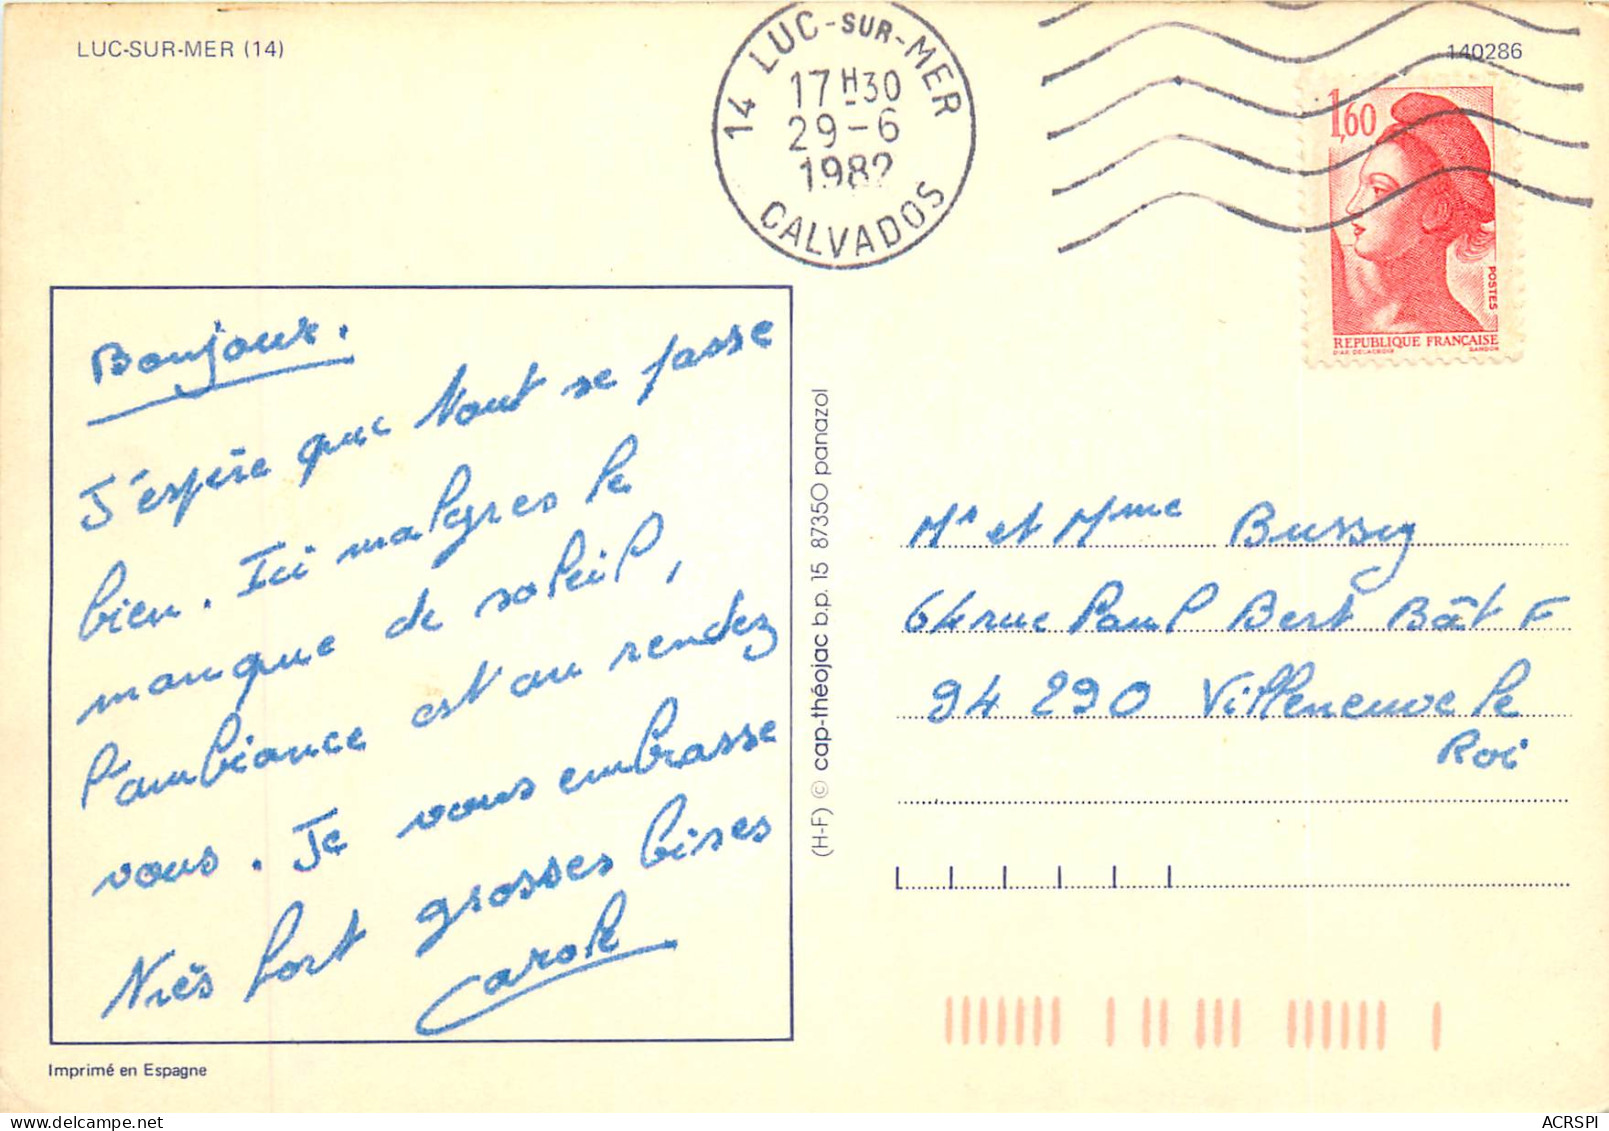 LUC-SUR-MER (14)
14 LUC-SUR-MER
17H30
29-6
1982
CALVADOS
140286
1,60
POSTES
REPUBLIQUE FRANÇAISE
D'AP. DELACROIX GANDON
Bonjour.
J'espère que tout se passe
bien. Ici malgres le
manque de soleil,
l'ambiance est au rendez
vous. Je vous embrasse
très fort grosses bises
Carole
Imprimé en Espagne
(H-F) © cap-théojac b.p. 15 87350 panazol
Mr et Mme Bussy
64 rue Paul Bert Bât F
94 290 Villeneuve le
Roi
ACRSPI